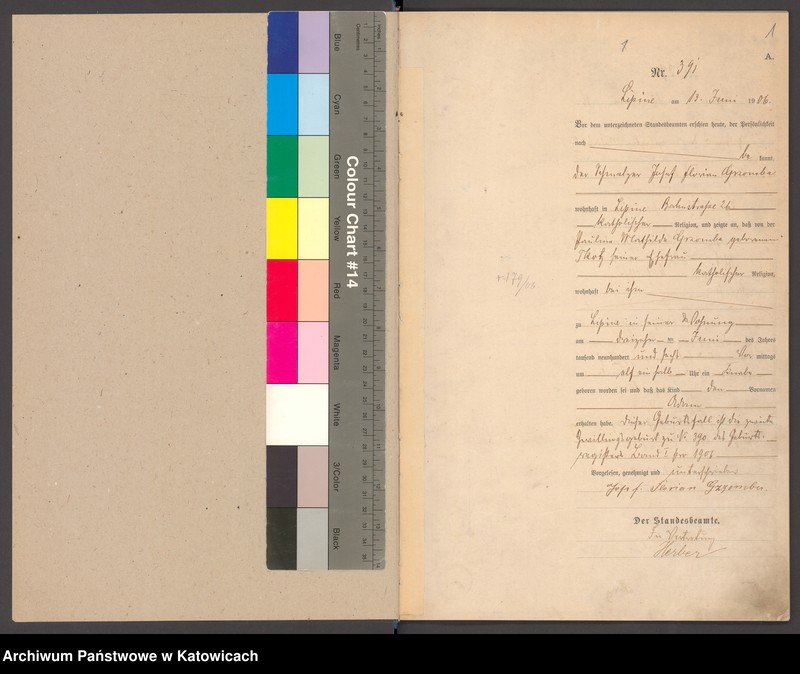 Blue
Cyan
Green
Yellow
Red
Magenta
White
3/Color
Black
Colour Chart #14
1
1
A.
Nr. 391
Lipine am 13. Juni 1906.
Vor dem unterzeichneten Standesbeamten erschien heute, der Persönlichkeit
nach
be kannt,
der Schmelzer Josef Florian
wohnhaft in Lipine Bahnstraße
katholischer Religion, und zeigte an, daß von der
Pauline Mathilde geborenen
seiner Ehefrau
katholischer Religion,
wohnhaft bei ihm
zu Lipine in seiner Wohnung
am dreizehn ten Juni des Jahres
tausend neunhundert und sechs Vor mittags
um elf ein halb Uhr ein Knabe
geboren worden sei und daß das Kind den Vornamen
Adam
erhalten habe. Dieser Geburtsfall ist die zweite
Zwillingsgeburt zu Nr. 390 des Geburts-
registers Band I pro 1906
Vorgelesen, genehmigt und unterschrieben
Josef Florian
Der Standesbeamte.
In Vertretung
Herber
Archiwum Państwowe w Katowicach